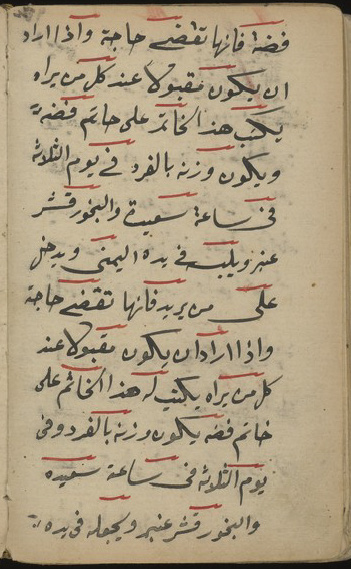 فضة فانها تقضى حاجة واذا اراد
ان يكون مقبولا عند كل من يراه
يكتب هذا الخاتم على خاتم فضة
ويكون وزنه بالفرد في يوم الثلاثة
في ساعة سعيدة والبخور قشر
عنبر ويلبسه في يده اليمنى ويدخل
على من يريد فانها تقضى حاجة
واذا اراد ان يكون مقبولا عند
كل من يراه يكتب له هذا الخاتم على
خاتم فضه يكون وزنه بالفرد وفى
يوم الثلاثه فى ساعة سعيده
والبخور قشر عنبر ويجعله فى يده